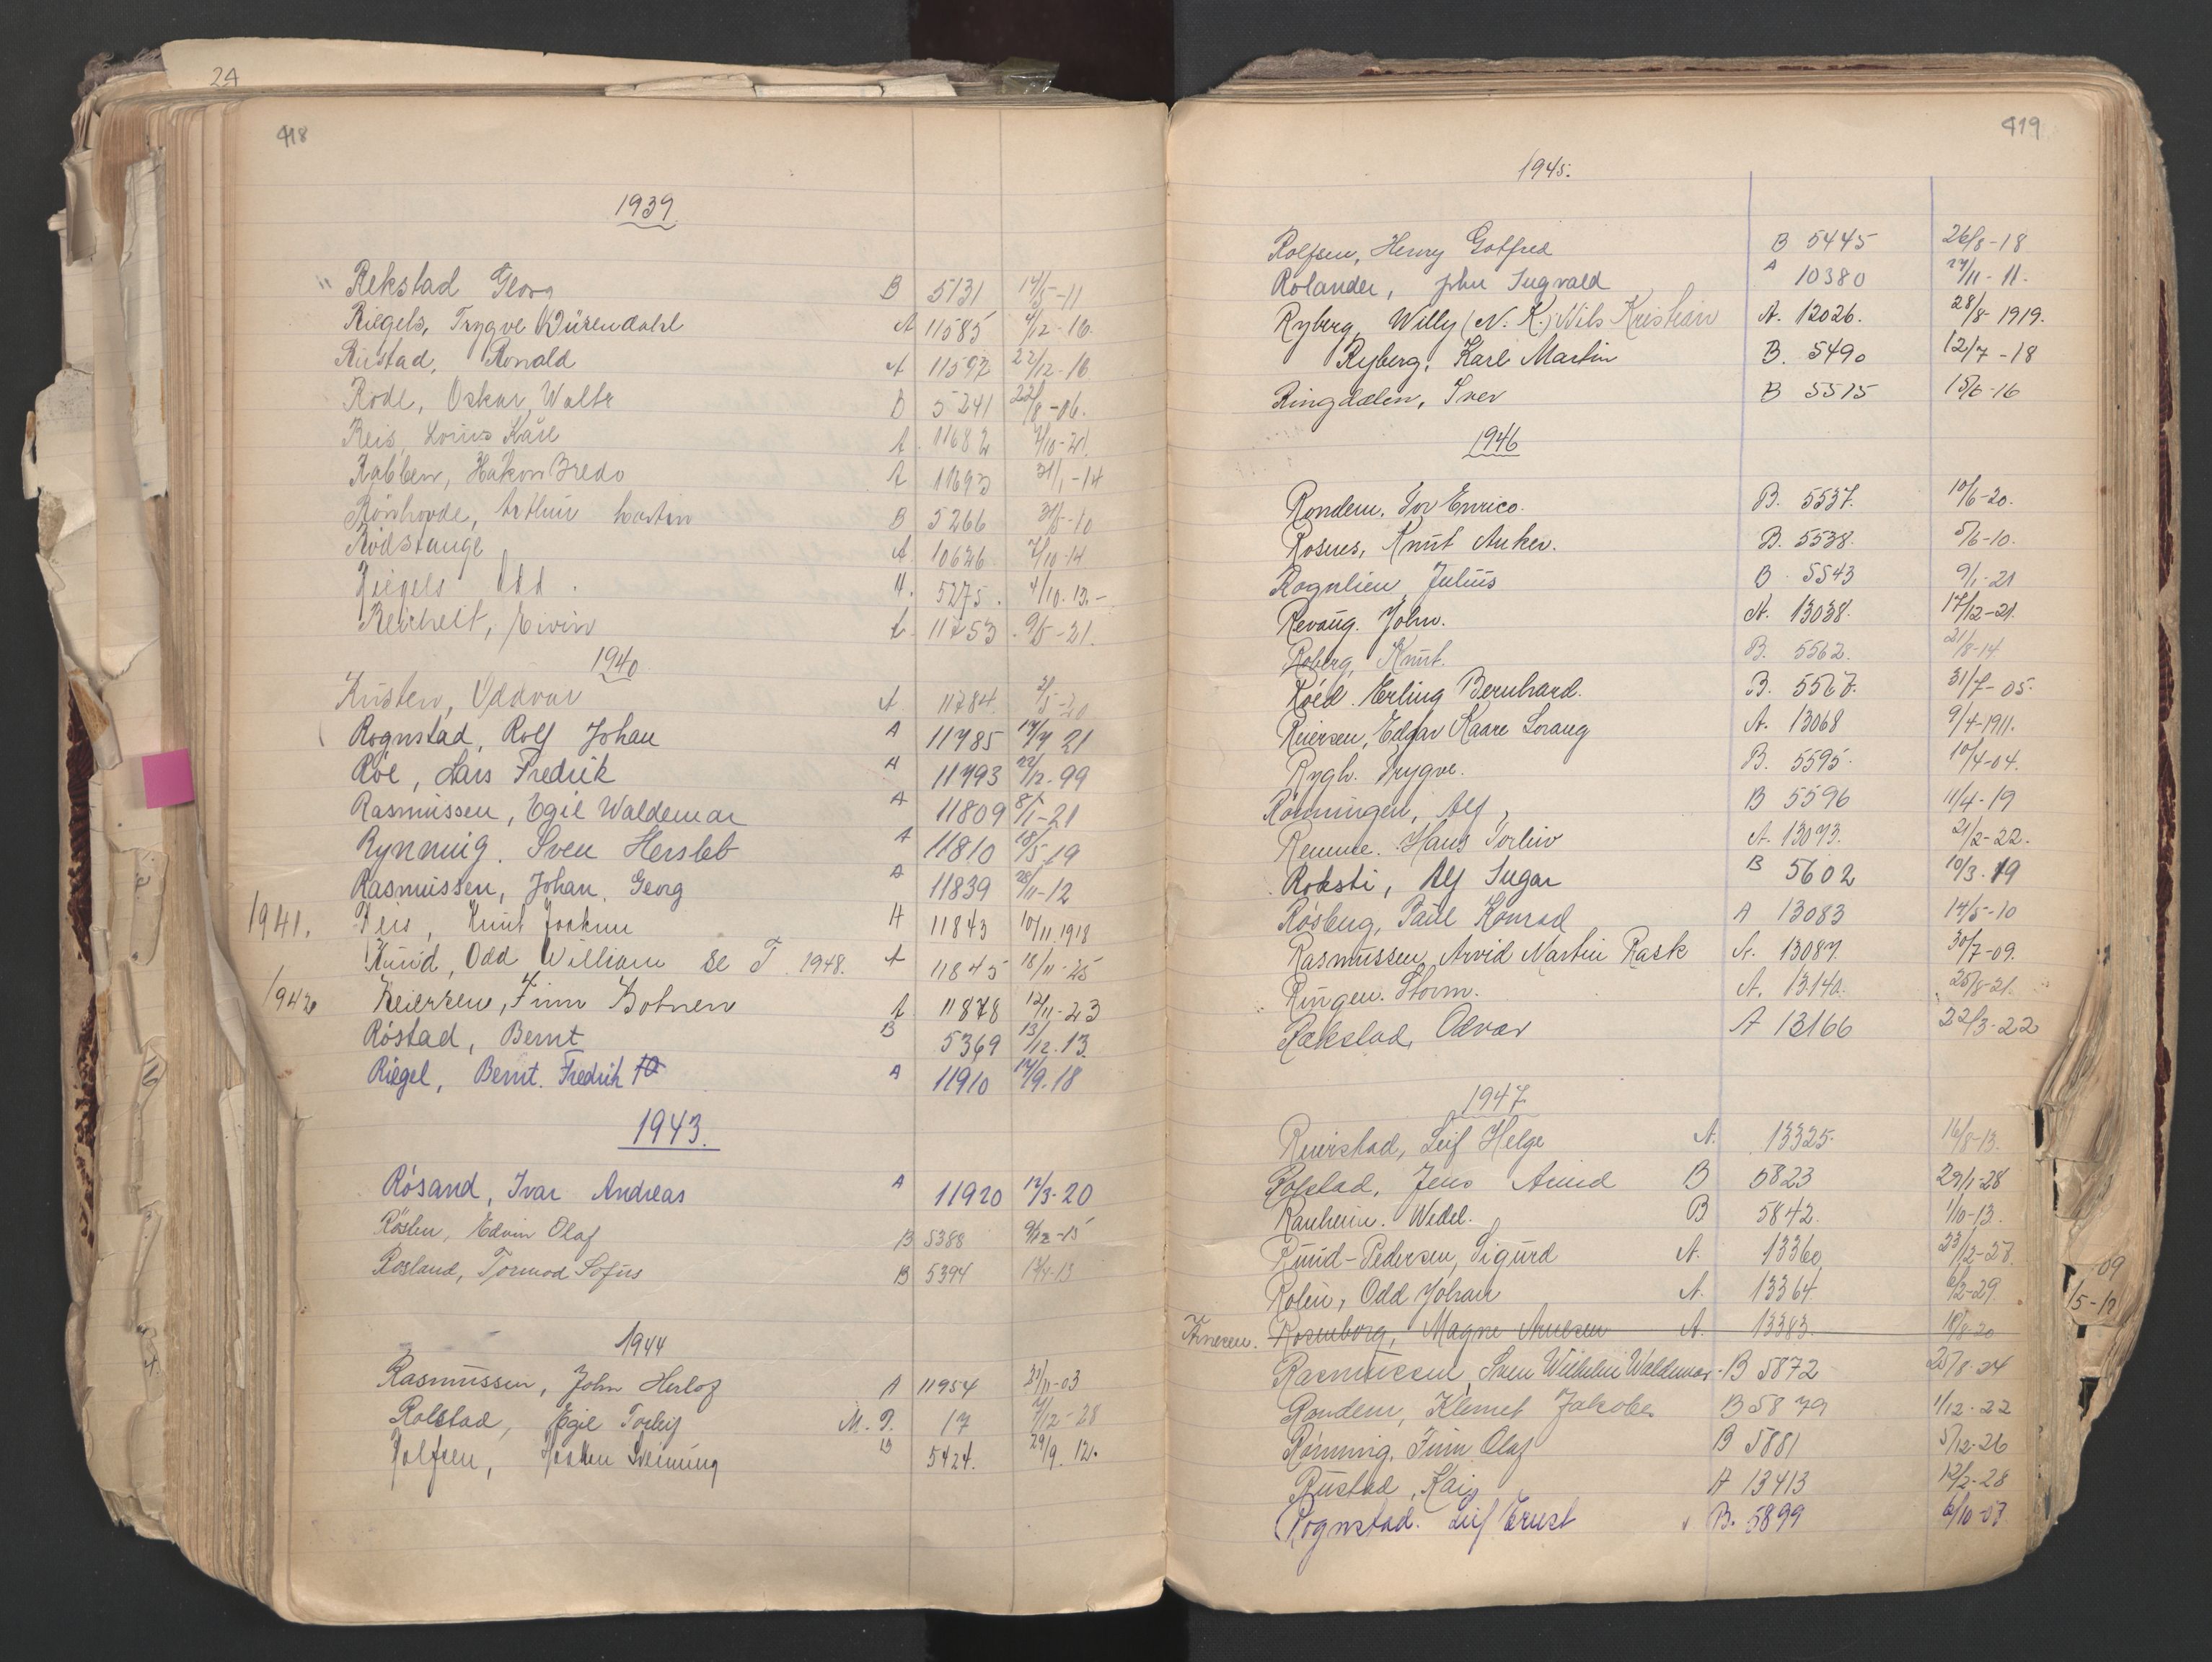 24
418
1939
Rekstad Georg B 5131 14/5-11
Riegels, Trygve Dürendahl A 11585 4/12-16.
Ristad, Ronald A 11592 22/12-16
Rode, Oskar Walte B 5241 22/8-06.
Reis, Louis Kåre A 11682 7/10-21.
Rabben, Håkon Bredo A 11693 31/1-14
Rönhovde, Arthur Martin B 5266 31/5-10
Rödstange A. 10626 7/10-14
Riegels Odd. A. 5275. 4/10.13.-
Reichelt, Eivin A. 11753 9/5-21.
1940.
Kristen, Oddvar A 11784. 31/5-20
Rognstad, Rolf Johan A 11785 17/7 21
Röe, Lars Fredrik A 11793 22/12-99
Rasmussen, Egil Waldemar A 11809 8/1-21
Rynning. Sven Hersleb A 11810 18/5 19
Rasmussen, Johan. Georg A 11839 28/11-12
1941. Reis, Knut Joakim A 11843 10/11.1918
Ruud, Odd William se T. 1948. A 11845 18/11-25
1942 Reiersen, Finn Botnen A 11878 12/11-23
Röstad, Bernt B 5369 13/12.13.
Riegel, Bernt. Fredrik A 11910 14/9.18
1943.
Rösand, Ivar Andreas A 11920 12/3-20
Röslen, Edvin Olaf B 5388 9/12-15
Rosland, Tormod Sofus B 5394
1944
Rasmussen, John Herlof A 11954 21/11-03
Rolstad, Egil Torleif M.P. 17 7/12-28
Rolfsen, Haakon Svenning B 5424. 29/9. 12.
419
1945.
Rolfsen, Henry Gotfred B 5445 26/8-18
Rolander, John Ingvald A 10380 27/11-11.
Ryberg, Willy (N. K.) Nils Kristian A. 12026. 28/8-1919.
Ryberg, Karl Martin B. 5490 12/7-18
Ringdalen, Iver B 5515 15/6-16
1946
Rondem, Tor Enrico. B. 5537. 10/6-20.
Rosnes, Knut Anker. B. 5538. 5/6-10.
Rognlien, Julius B. 5543 9/1-21
Revaug. John. A. 13038. 17/12-21.
Roberg, Knut. B. 5562. 21/8-14
Röed. Erling Bernhard. B. 5567. 31/7-05.
Reiersen, Edgar Kaare Sorang A. 13068 9/4-1911.
Rygh. Trygve. B. 5595. 10/4-04.
Rönningen, Alf B 5596 11/4-19
Remme. Hans Torleiv A. 13073. 21/2-22.
Roksti, Alf Ingar B 5602 10/3.19
Rösberg, Paul Konrad A 13083 14/5-10
Rasmussen, Arvid Martin Rask A. 13087. 30/7-09.
Ringen. Storm. A. 13140. 25/8-21.
Rækstad, Odvar A 13166 22/3-22
1947
Reierstad, Leif Helge A. 13325. 16/8-13.
Rolstad, Jens Arvid B 5823 29/1-28
Ranheim. Widel. B 5842. 1/10-13.
Ruud-Pedersen, Sigurd A. 13360 23/12-28.
Rolin, Odd Johan A. 13364 6/2-29
Arnesen. Rosenborg, Magne Arnesen A. 13383. 18/8-20
Rasmussen, Sven Wilhelm Waldemar. B 5872 25/8-24
Rondem, Klemet Jakobs B 5879 1/12-22
Rönning, Finn Olaf B 5881 5/12-26
Rustad, Kai A 13413 12/2-28
Rognstad. Leif Ernst B. 5899 6/10-07
-09
1/5-12